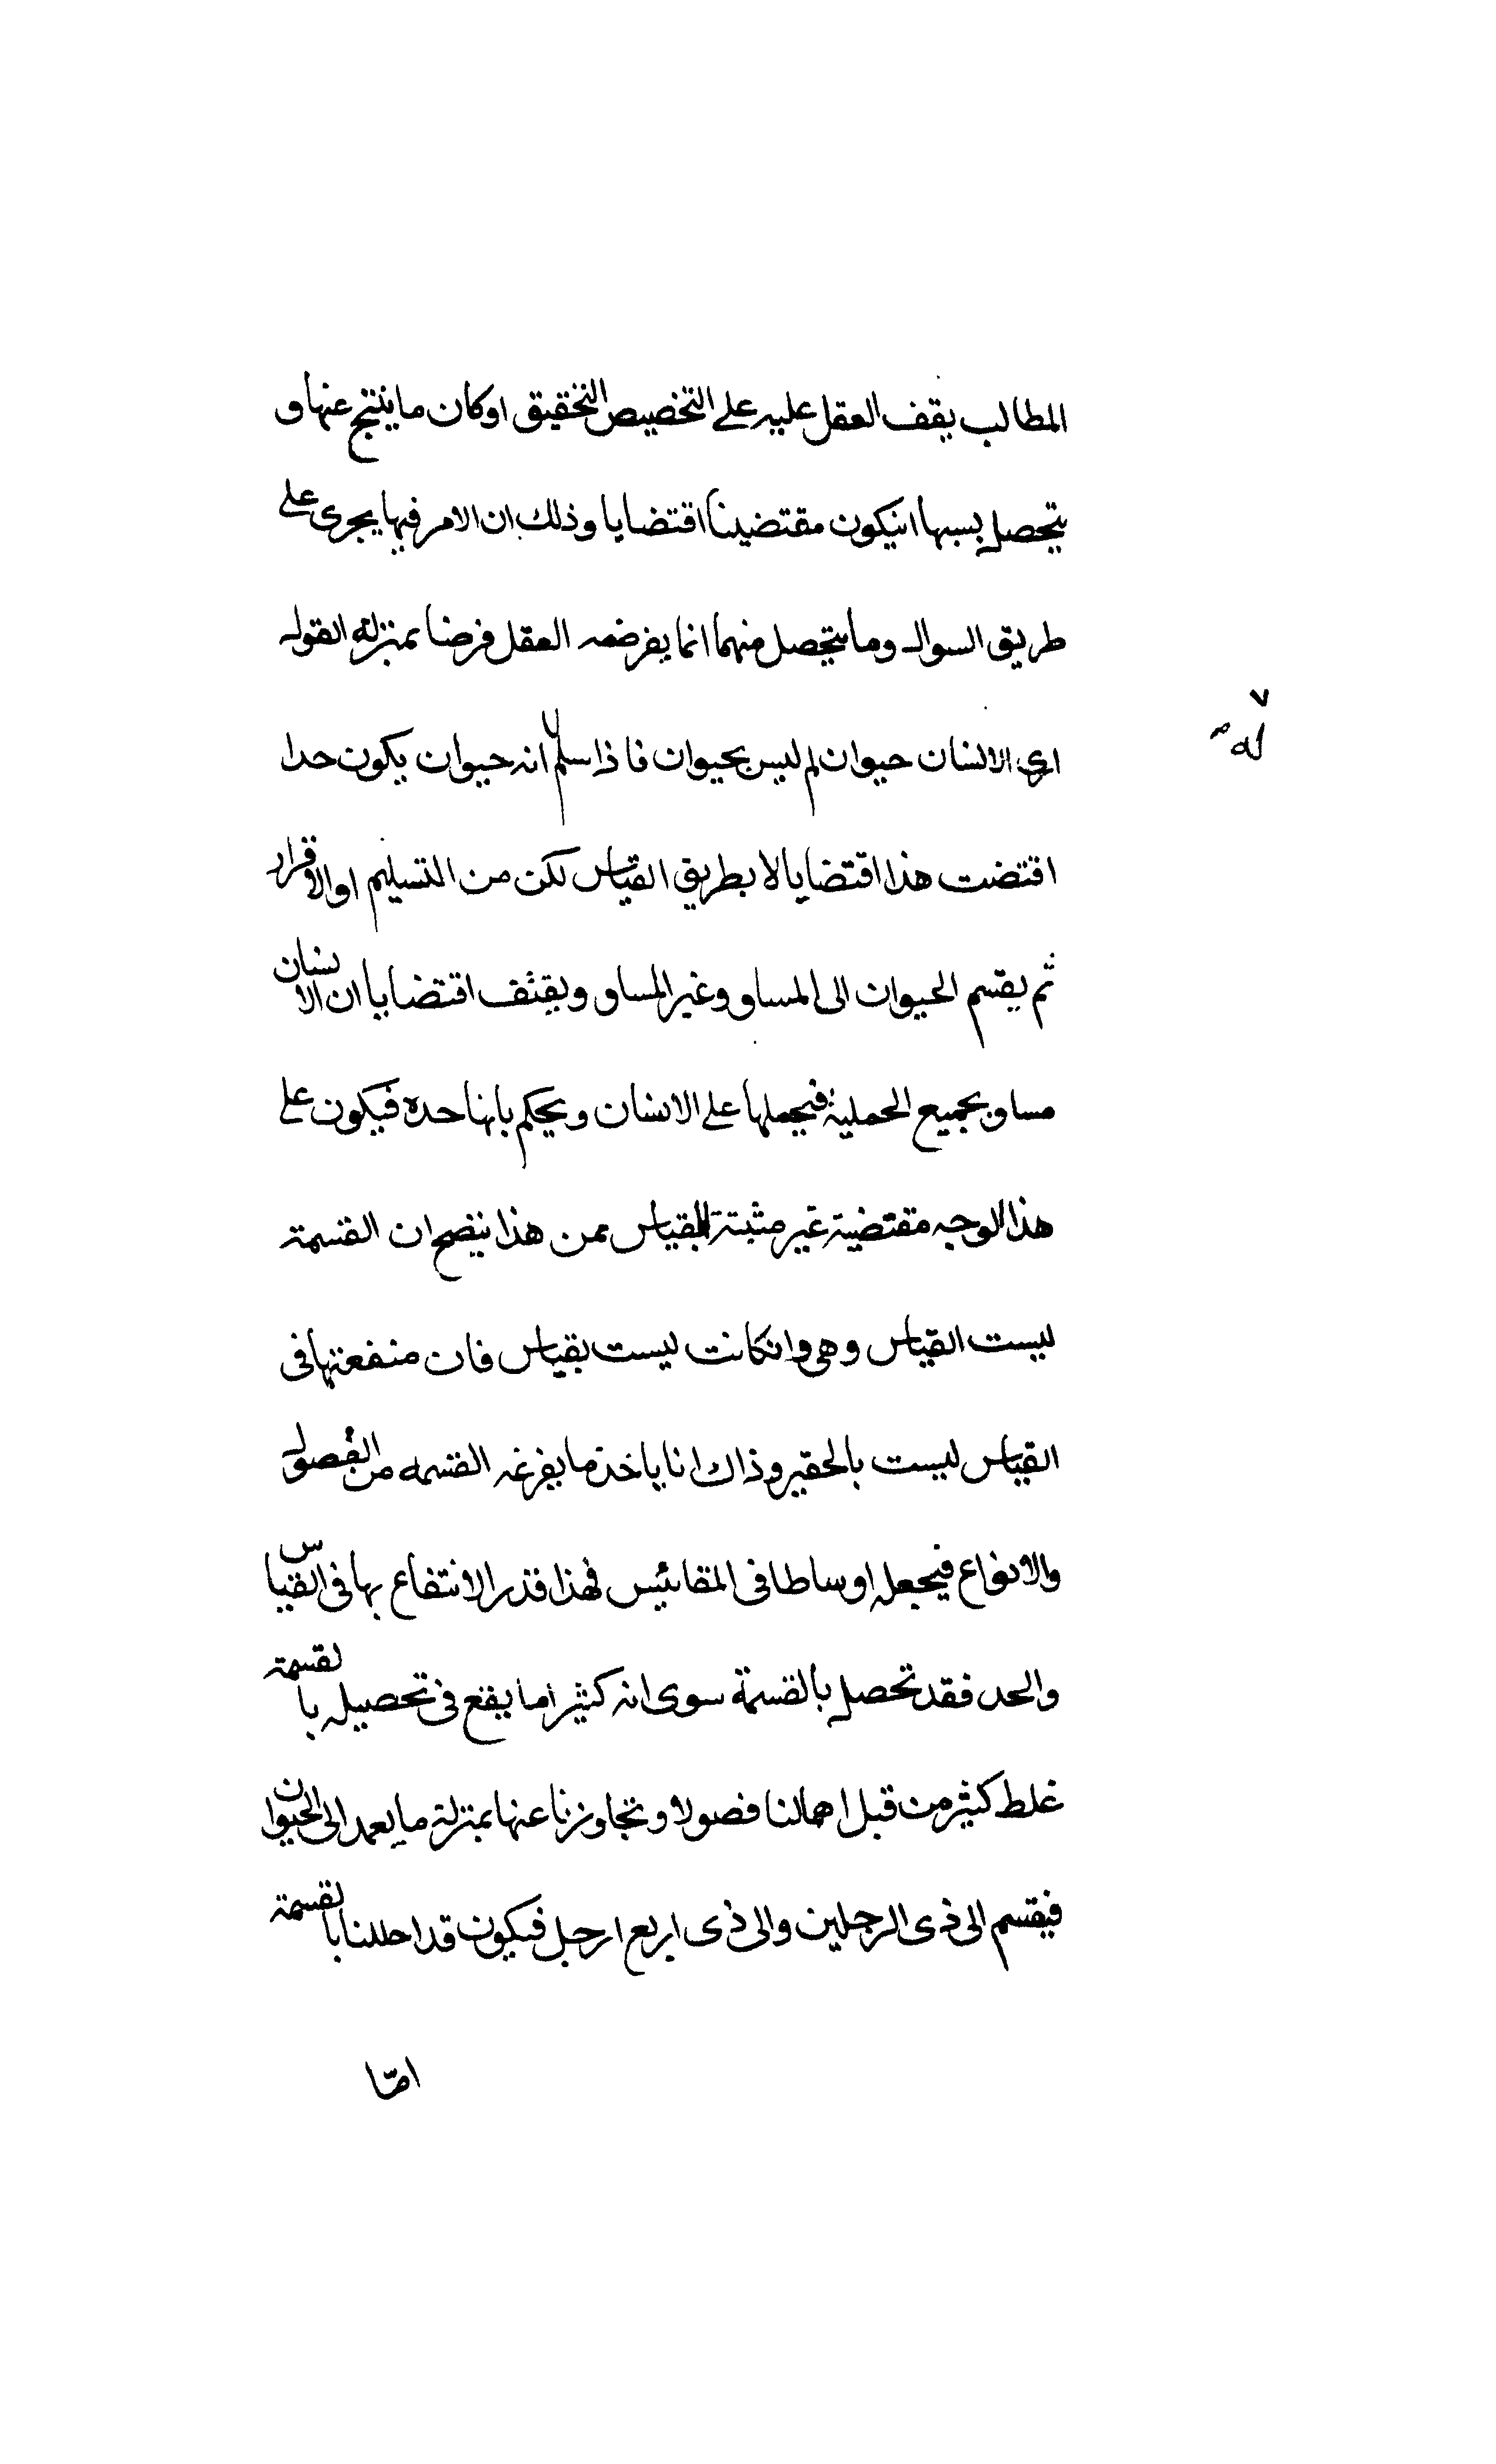 المطالب يقف العقل عليه على التخصيص التحقيق اوكان ما ينتج عنها و
يتحصل بسبها انيكون مقتضينا اقتضابا وذلك ان الامر فيها يجرى على
طريق السوال وما يتحصل منهما انما يفرضه العقل فرضا بمنزلة القوله
ارى الانسان حيوان لم ليس بحيوان فاذا سلم انه حيوان يكون حدا
له
اقتضت هذا اقتضابا لا بطريق القياس لكن من التسليم او الاقرار
ثم يقسم الحيوان الى المساو وغير المساو ويقتف اقتضابا ان الانسان
مساو بجميع الحملية فيجملها على الانسان ويحكم بانها حده فيكون على
هذا الوجه مقتضية غير مثبتة للقياس ممن هذا يتضح ان القسمة
ليست القياس وهى وانكانت ليست بقياس فان منفعتها فى
القياس ليست بالحقير وذاك انا ياخذ ما يفرغه القسمه من الفصول
والانواع فيجعله اوساطا فى المقائيس فهذا قدر الانتفاع بها فى القياس
والحد فقد تحصل بالقسمة سوى انه كثيرا ما يقع فى تحصيله بالقسمة
غلط كثير من قبل اهمالنا فصولا وتجاوزنا عنها بمنزلة ما يعمد الى الحيوان
فيقسم الى ذى الرجلين والى ذى اربع ارجل فيكون قد احللنا بالقسمة
امّا